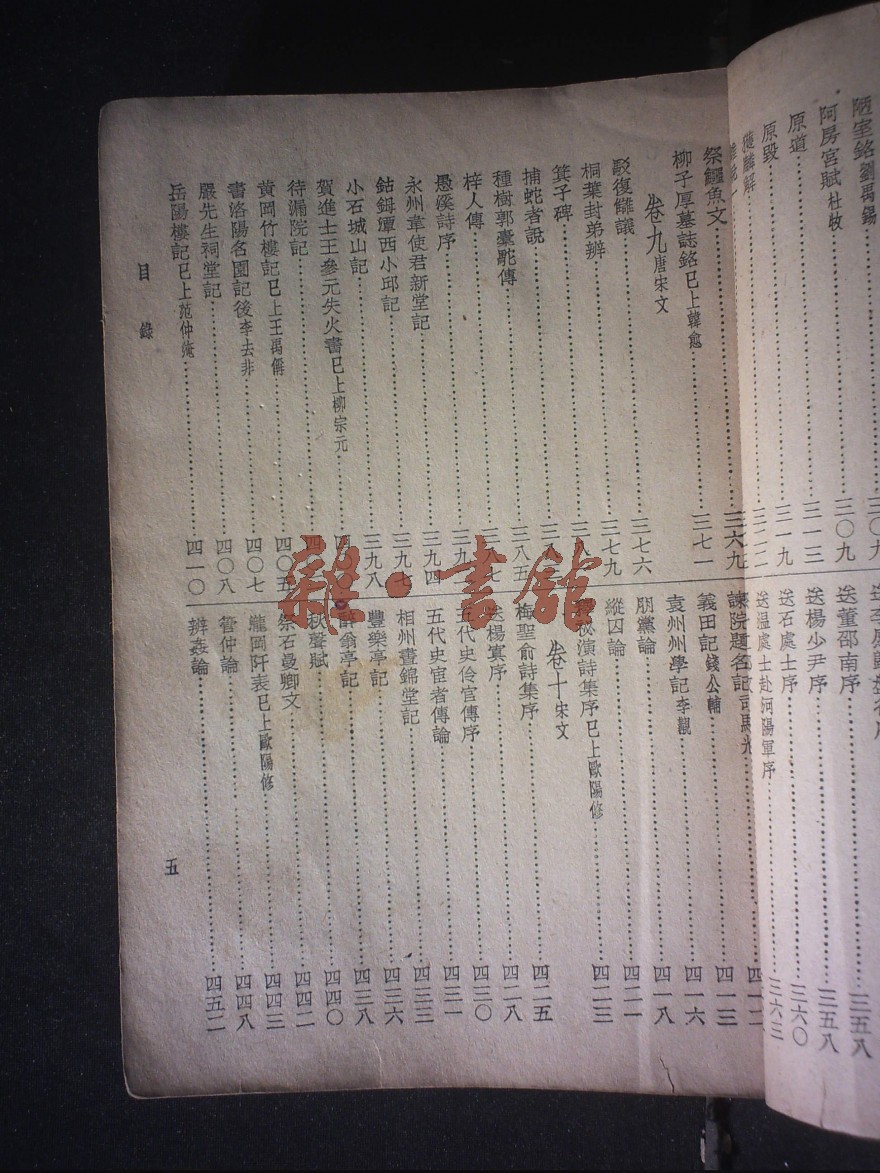 陋室銘劉禹錫……三〇九
阿房宮賦杜牧……三〇九
原道……三一三
原毀……三一九
獲麟解……三二二
送董邵南序……三五八
送楊少尹序……三五八
送石處士序……三六〇
送温處士赴河陽軍序……三六三
祭鱷魚文……三六九
柳子厚墓誌銘已上韓愈……三七一
卷九唐宋文
駁復讎議……三七六
桐葉封弟辨……三七九
箕子碑
捕蛇者說
種樹郭橐駝傳……三八五
梓人傳
愚溪詩序
永州韋使君新堂記……三九四
鈷鉧潭西小邱記……三九七
小石城山記……三九八
賀進士王參元失火書已上柳宗元
待漏院記
黄岡竹樓記已上王禹偁……四〇五
書洛陽名園記後李去非……四〇七
嚴先生祠堂記……四〇八
岳陽樓記已上范仲淹……四一〇
諫院題名記司馬光……四一二
義田記錢公輔……四一三
袁州州學記李覯……四一六
朋黨論……四一八
縱囚論……四二一
釋祕演詩集序已上歐陽修……四二三
卷十宋文
梅聖俞詩集序……四二五
送楊寘序……四二八
五代史伶官傳序……四三〇
五代史宦者傳論……四三一
相州晝錦堂記……四三三
豐樂亭記……四三六
醉翁亭記……四三八
秋聲賦……四四〇
祭石曼卿文……四四二
瀧岡阡表已上歐陽修……四四三
管仲論……四四八
辨姦論……四五二
目錄
五
雜·書館